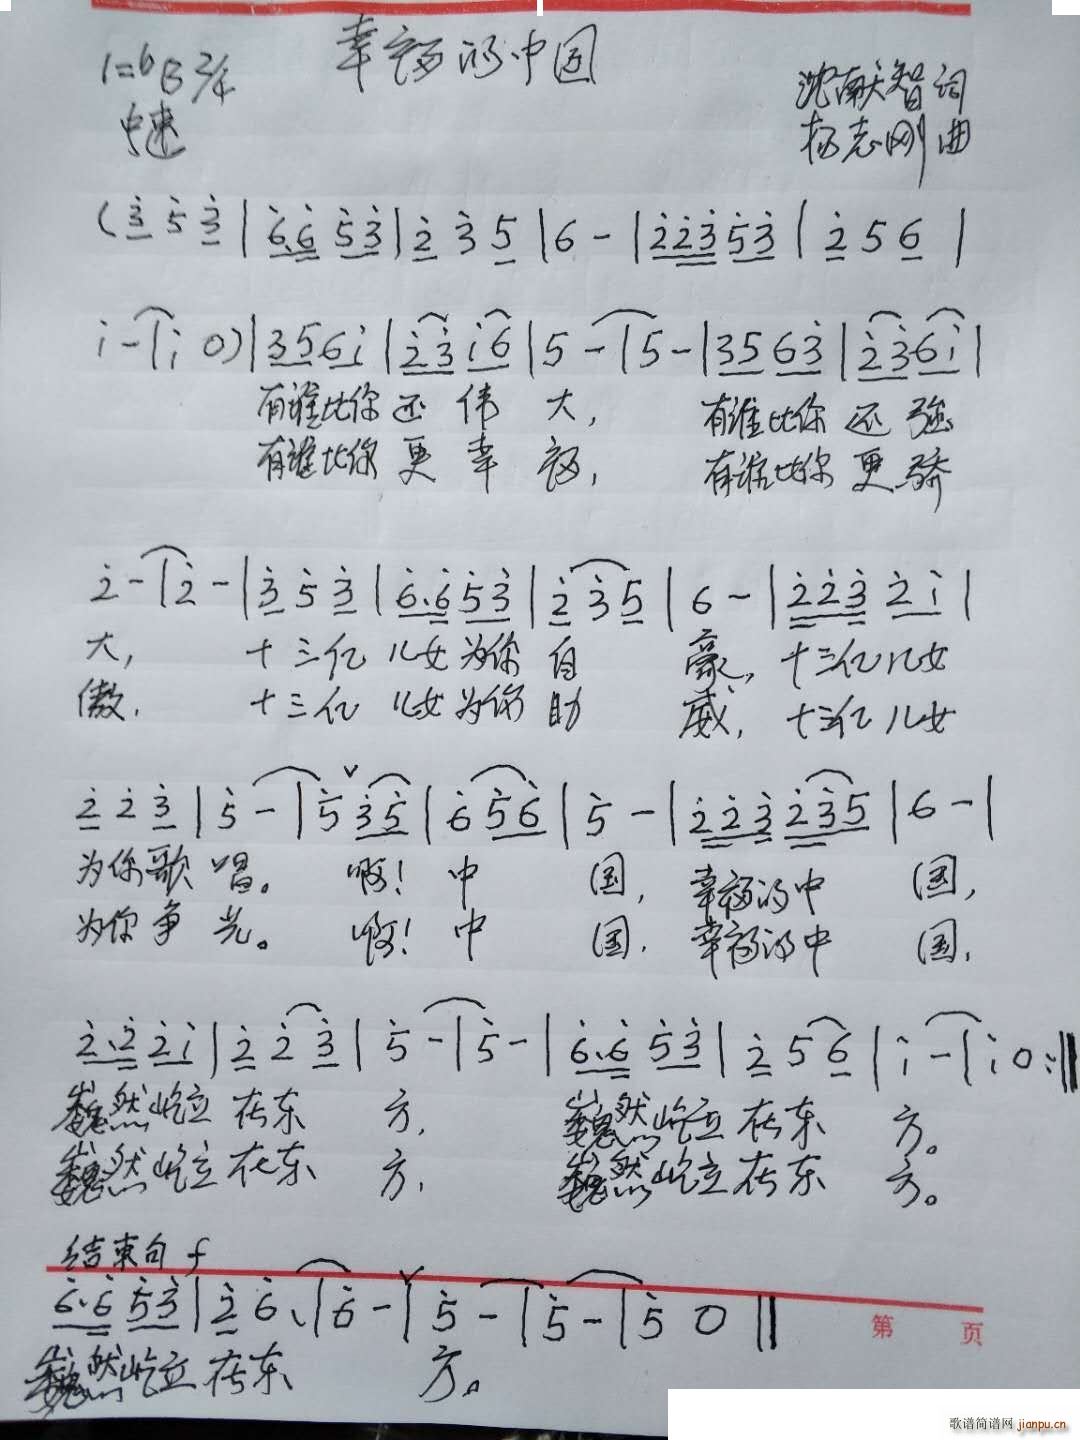 幸福的中国
1=♭B 2/4
中速
沈献智词
杨志刚曲
(3̇ 5̇ 3̇ | 6̇.6̇ 5̇3̇ | 2̇ 3̇ 5̇ | 6 - | 2̇2̇3̇ 5̇3̇ | 2̇ 5 6 |
i̇ - | i̇ 0) | 3561̇ | 2̇3̇ i̇6 | 5 - | 5 - | 35 63̇ | 2̇3̇6i̇ |
有谁比你还伟大, 有谁比你还强
有谁比你更幸福, 有谁比你更骄
2̇ - | 2̇ - | 3̇ 5̇ 3̇ | 6̇.6̇ 5̇3̇ | 2̇ 3̇ 5̇ | 6 - | 2̇2̇3̇ 2̇i̇ |
大, 十三亿儿女为你自豪, 十三亿儿女
傲, 十三亿儿女为你助威, 十三亿儿女
2̇ 2̇ 3̇ | 5̇ - | 5̇ 3̇5̇ | 6̇ 5̇6̇ | 5̇ - | 2̇2̇3̇ 2̇3̇5̇ | 6 - |
为你歌唱。 啊! 中国, 幸福的中国,
为你争光。 啊! 中国, 幸福的中国,
2̇.2̇ 2̇i̇ | 2̇ 2̇ 3̇ | 5̇ - | 5̇ - | 6̇.6̇ 5̇3̇ | 2̇ 5 6̇ | i̇ - | i̇ 0 :||
巍然屹立在东方, 巍然屹立在东方。
巍然屹立在东方, 巍然屹立在东方。
结束句 f
6̇.6̇ 5̇3̇ | 2̇ 6̇. | 6̇ - | 5̇ - | 5̇ - | 5̇ 0 ||
巍然屹立在东方。
第 页
歌谱简谱网 jianpu.cn